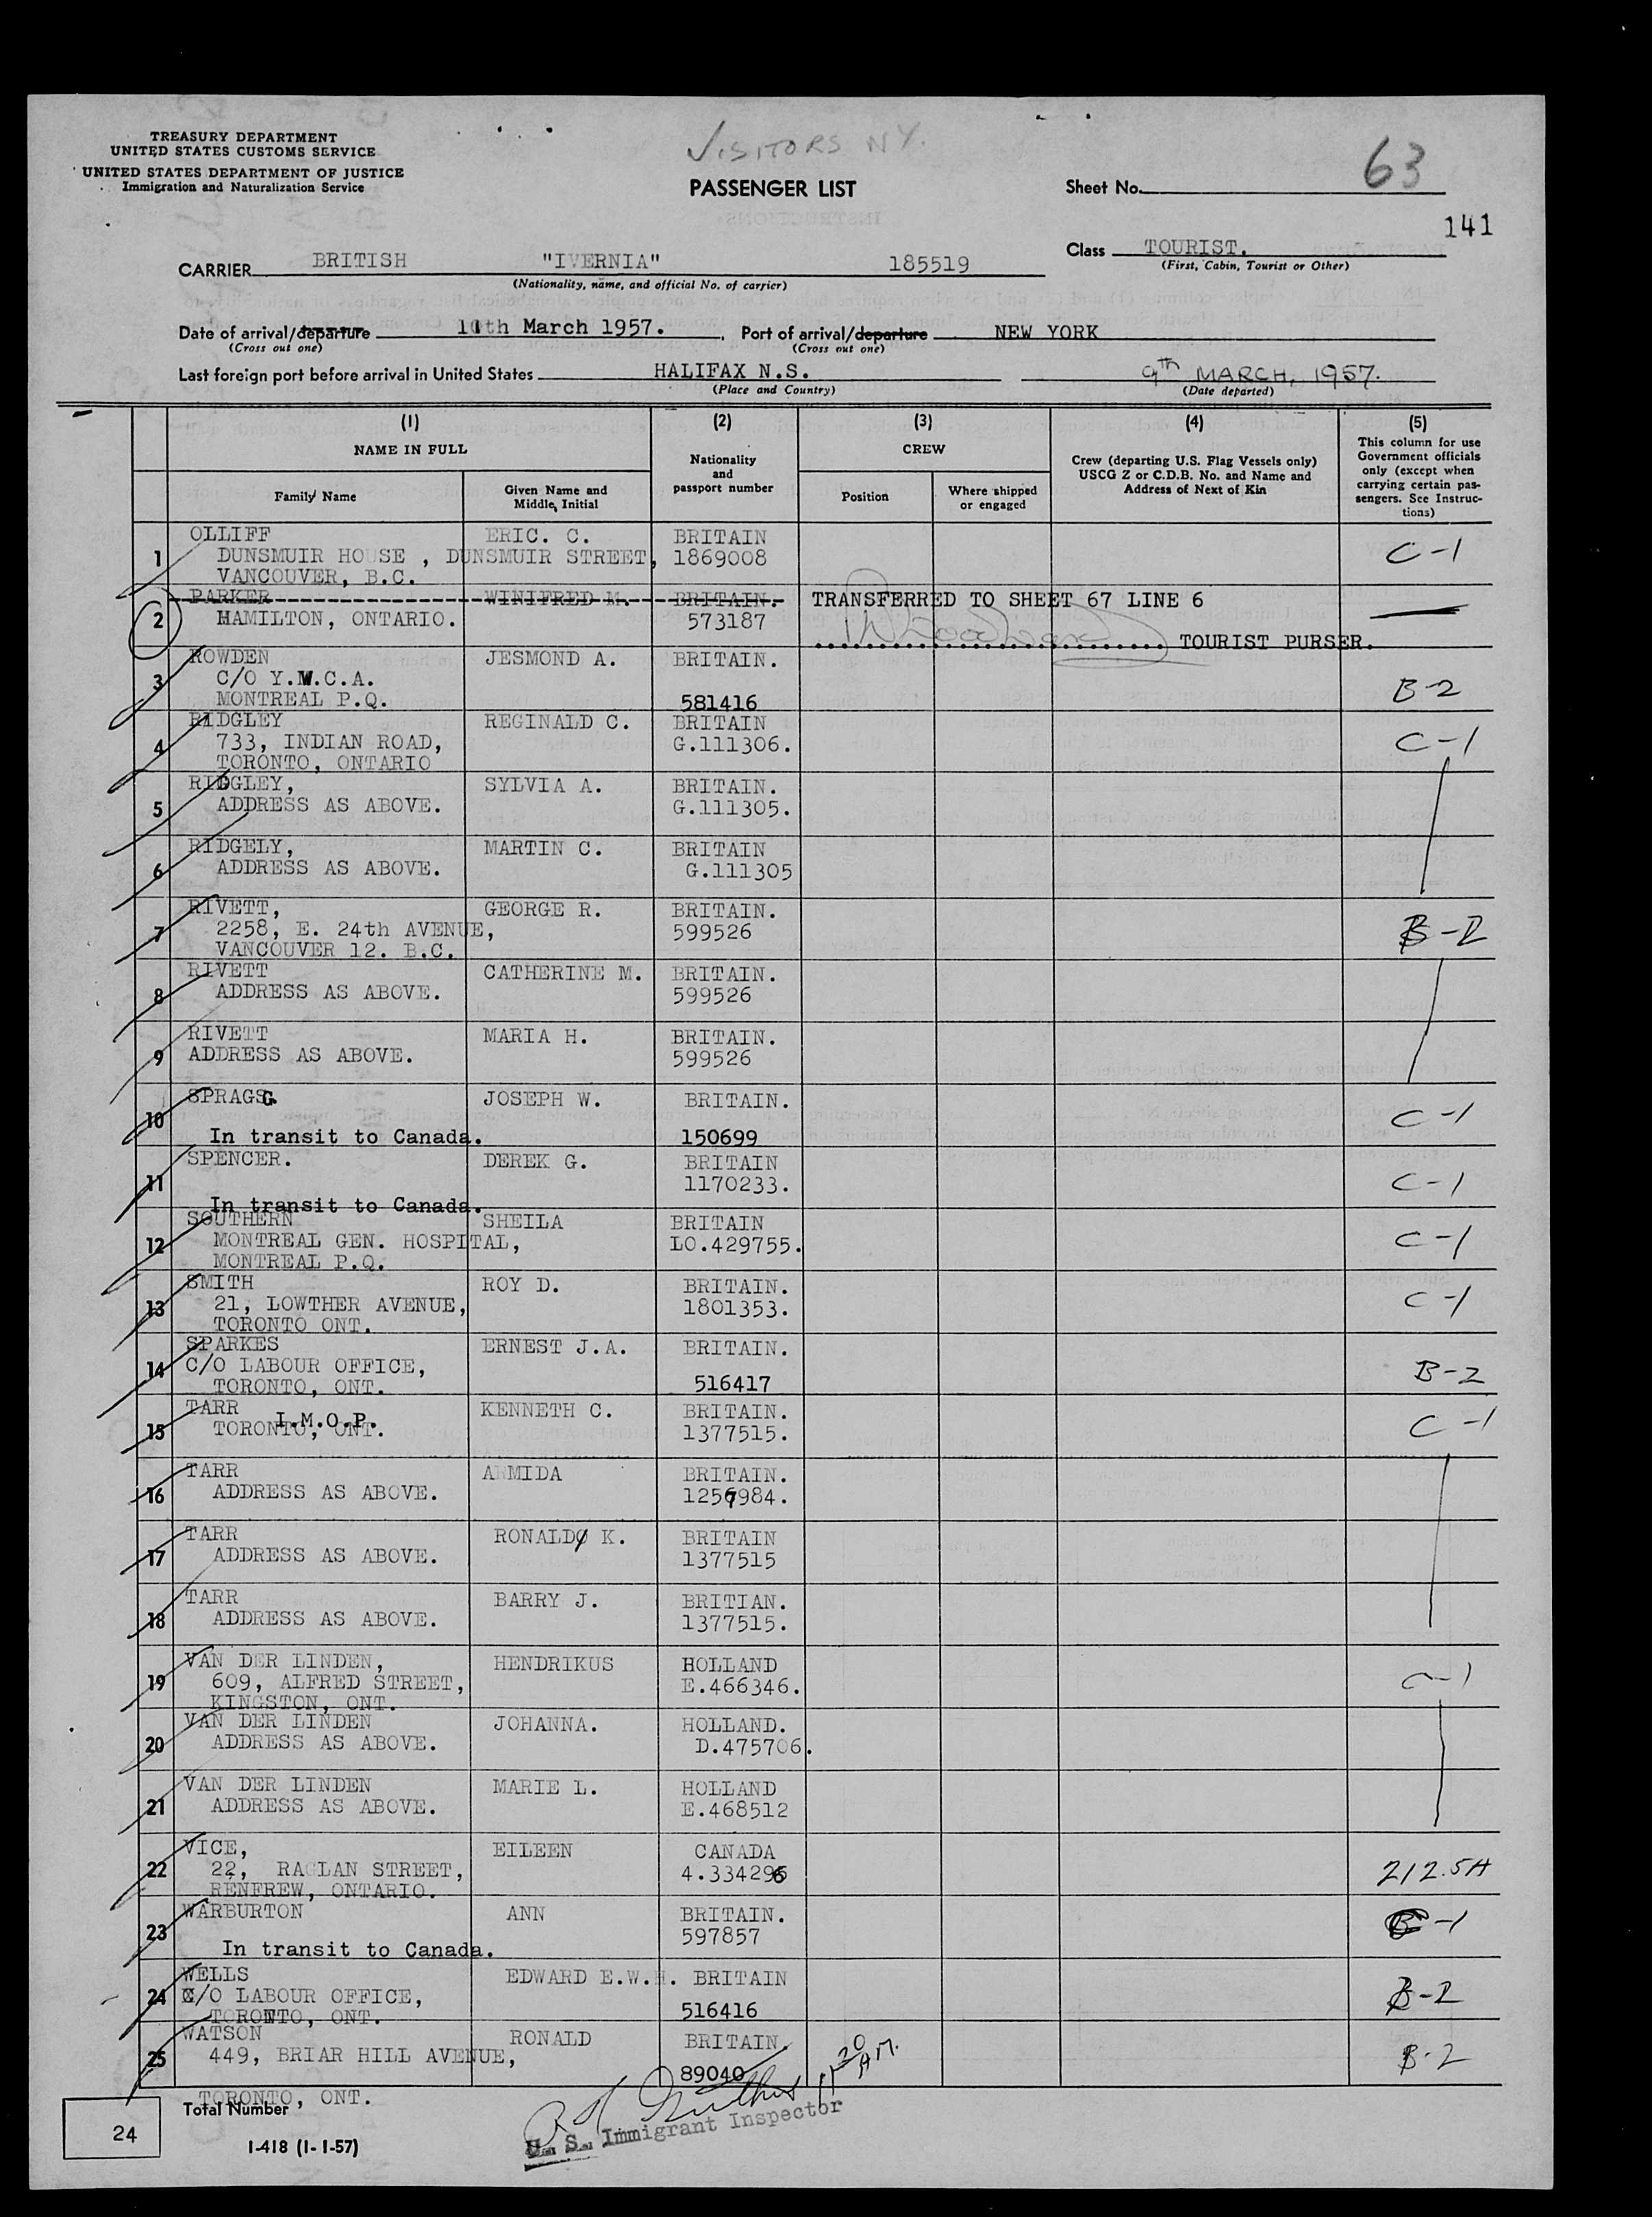 TREASURY DEPARTMENT
UNITED STATES CUSTOMS SERVICE
UNITED STATES DEPARTMENT OF JUSTICE
Immigration and Naturalization Service
VISITORS NY.
PASSENGER LIST
Sheet No. 63
141
Class TOURIST.
(First, Cabin, Tourist or Other)
CARRIER BRITISH "IVERNIA" 185519
(Nationality, name, and official No. of carrier)
Date of arrival/departure 11th March 1957. Port of arrival/departure NEW YORK
(Cross out one) (Cross out one)
Last foreign port before arrival in United States HALIFAX N.S. 9th MARCH, 1957.
(Place and Country) (Date departed)
(1) (2) (3) (4) (5)
NAME IN FULL
Family Name
Given Name and Middle Initial
Nationality and passport number
CREW
Position
Where shipped or engaged
Crew (departing U.S. Flag Vessels only) USCG Z or C.D.B. No. and Name and Address of Next of Kin
This column for use Government officials only (except when carrying certain passengers. See Instructions)
1 OLLIFF ERIC. C. BRITAIN
DUNSMUIR HOUSE , DUNSMUIR STREET, 1869008 C-1
VANCOUVER, B.C.
2 PARKER WINIFRED M. BRITAIN. TRANSFERRED TO SHEET 67 LINE 6
HAMILTON, ONTARIO. 573187
TOURIST PURSER.
3 ROWDEN JESMOND A. BRITAIN.
C/O Y.M.C.A.
MONTREAL P.Q. 581416 B-2
4 RIDGLEY REGINALD C. BRITAIN
733, INDIAN ROAD, G.111306. C-1
TORONTO, ONTARIO
5 RIDGLEY, SYLVIA A. BRITAIN.
ADDRESS AS ABOVE. G.111305.
6 RIDGELY, MARTIN C. BRITAIN
ADDRESS AS ABOVE. G.111305
7 RIVETT, GEORGE R. BRITAIN.
2258, E. 24th AVENUE, 599526 B-2
VANCOUVER 12. B.C.
8 RIVETT CATHERINE M. BRITAIN.
ADDRESS AS ABOVE. 599526
9 RIVETT MARIA H. BRITAIN.
ADDRESS AS ABOVE. 599526
10 SPRAGG JOSEPH W. BRITAIN. C-1
In transit to Canada. 150699
11 SPENCER. DEREK G. BRITAIN
1170233. C-1
In transit to Canada.
12 SOUTHERN SHEILA BRITAIN
MONTREAL GEN. HOSPITAL, LO.429755. C-1
MONTREAL P.Q.
13 SMITH ROY D. BRITAIN.
21, LOWTHER AVENUE, 1801353. C-1
TORONTO ONT.
14 SPARKES ERNEST J.A. BRITAIN.
C/O LABOUR OFFICE, B-2
TORONTO, ONT. 516417
15 TARR KENNETH C. BRITAIN.
I.M.O.P.
TORONTO, ONT. 1377515. C-1
16 TARR ARMIDA BRITAIN.
ADDRESS AS ABOVE. 1257984.
17 TARR RONALD K. BRITAIN
ADDRESS AS ABOVE. 1377515
18 TARR BARRY J. BRITIAN.
ADDRESS AS ABOVE. 1377515.
19 VAN DER LINDEN, HENDRIKUS HOLLAND
609, ALFRED STREET, E.466346. C-1
KINGSTON, ONT.
20 VAN DER LINDEN JOHANNA. HOLLAND.
ADDRESS AS ABOVE. D.475706.
21 VAN DER LINDEN MARIE L. HOLLAND
ADDRESS AS ABOVE. E.468512
22 VICE, EILEEN CANADA
22, RAGLAN STREET, 4.334296 212.5A
RENFREW, ONTARIO.
23 WARBURTON ANN BRITAIN.
597857 C-1
In transit to Canada.
24 WELLS EDWARD E.W.H. BRITAIN
C/O LABOUR OFFICE, B-2
TORONTO, ONT. 516416
25 WATSON RONALD BRITAIN.
449, BRIAR HILL AVENUE, B-2
89040
TORONTO, ONT.
1120 AM.
Total Number 24
U. S. Immigrant Inspector
I-418 (1-1-57)